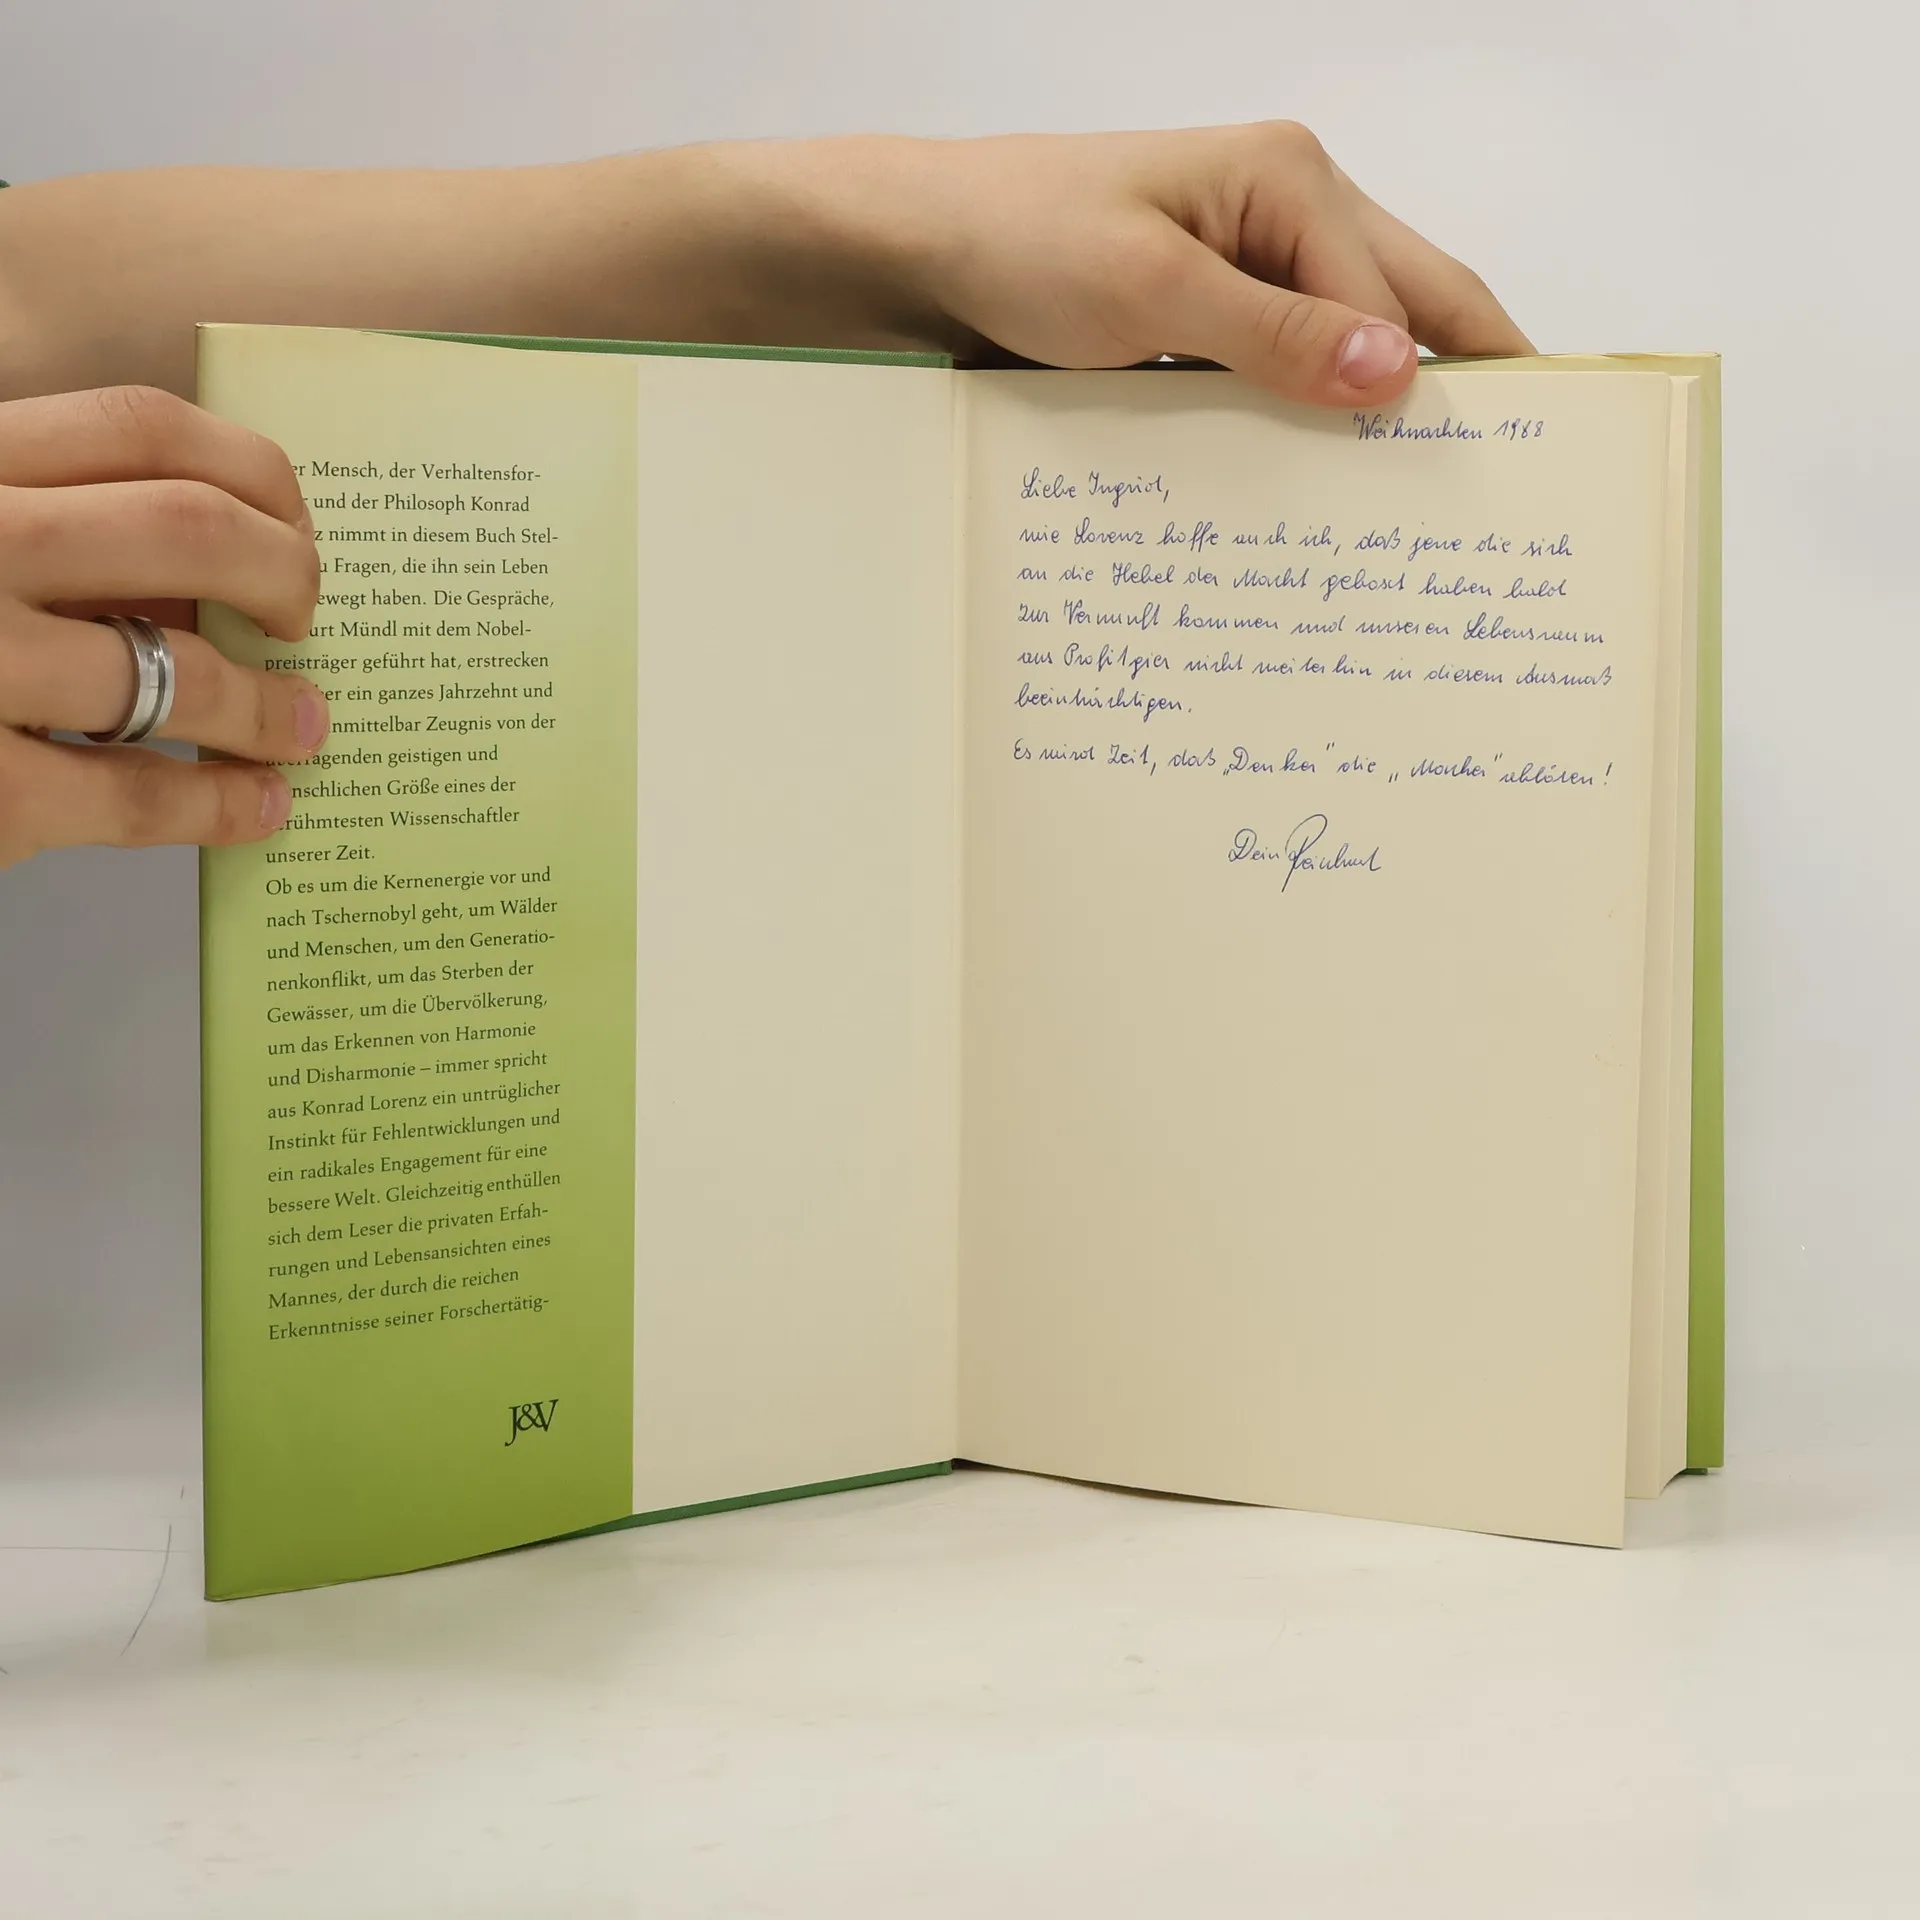 er Mensch, der Verhaltensfor-
und der Philosoph Konrad
z nimmt in diesem Buch Stel-
u Fragen, die ihn sein Leben
ewegt haben. Die Gespräche,
urt Mündl mit dem Nobel-
preisträger geführt hat, erstrecken
er ein ganzes Jahrzehnt und
nmittelbar Zeugnis von der
überragenden geistigen und
nschlichen Größe eines der
erühmtesten Wissenschaftler
unserer Zeit.
Ob es um die Kernenergie vor und
nach Tschernobyl geht, um Wälder
und Menschen, um den Generatio-
nenkonflikt, um das Sterben der
Gewässer, um die Übervölkerung,
um das Erkennen von Harmonie
und Disharmonie – immer spricht
aus Konrad Lorenz ein untrüglicher
Instinkt für Fehlentwicklungen und
ein radikales Engagement für eine
bessere Welt. Gleichzeitig enthüllen
sich dem Leser die privaten Erfah-
rungen und Lebensansichten eines
Mannes, der durch die reichen
Erkenntnisse seiner Forschertätig-
J&V
Weihnachten 1988
Liebe Ingrid,
wie Lorenz hoffe auch ich, daß jene die sich
an die Hebel der Macht geboxt haben bald
zur Vernunft kommen und unseren Lebensraum
aus Profitgier nicht weiterhin in diesem Ausmaß
beeinträchtigen.
Es wird Zeit, daß „Denker" die „Macher" ablösen!
Dein